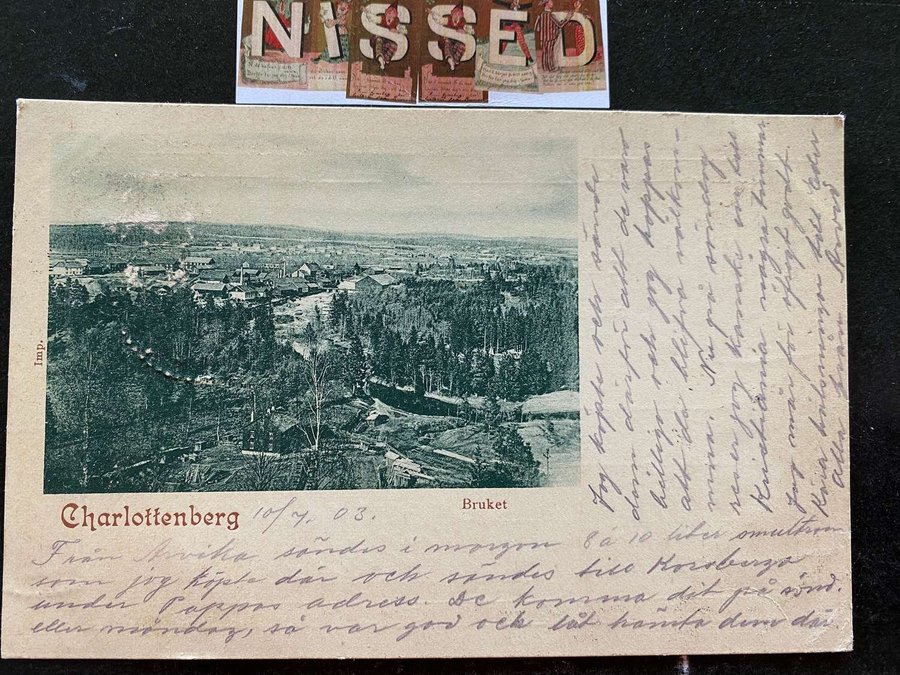 NISSED
Imp.
Charlottenberg
Bruket
10/7. 03.
Från Arvika sändes i morgon 8 a 10 liter smultron
som jag köpte där och sändes till Korsberga
under Pappas adress. De komma dit på sönd.
eller måndag, så var god och låt hämta dem där.
Jag köpte och sände
dem därför att de voro
billiga och jag hoppas
att de blifva välkom-
na. Nu på söndag
reser jag kanske över till
Kristiania några timmar.
Jag mår för öfrigt godt.
Kära hälsningar till Eder
alla från Arvid